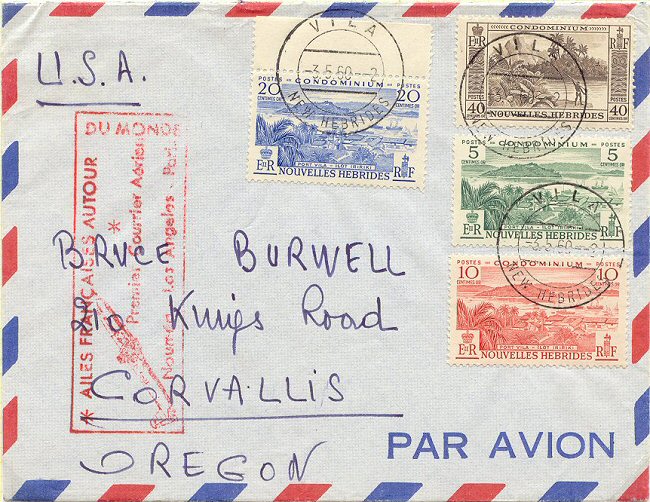 U.S.A.
VILA
3.5.60
NEW HEBRIDES
POSTES CONDOMINIUM POSTES
20 20
CENTIMES OR CENTIMES OR
PORT VILA - ILOT IRIRIKI
EIIR RF
NOUVELLES HEBRIDES
CONDOMINIUM
EIIR RF
POSTES POSTES
40 40
NOUVELLES HÉBRIDES
VILA
POSTES CONDOMINIUM POSTES
5 5
CENTIMES OR
EIIR RF
NOUVELLES HEBRIDES
VILA
3.5.60
NEW HEBRIDES
POSTES CONDOMINIUM POSTES
10 10
CENTIMES OR
PORT VILA - ILOT IRIRIKI
EIIR RF
NOUVELLES HEBRIDES
* AILES FRANÇAISES AUTOUR DU MONDE *
Premier Courrier Aérien
Nouméa - Los Angeles - Paris
BRUCE BURWELL
210 Kings Road
CORVALLIS
OREGON
PAR AVION